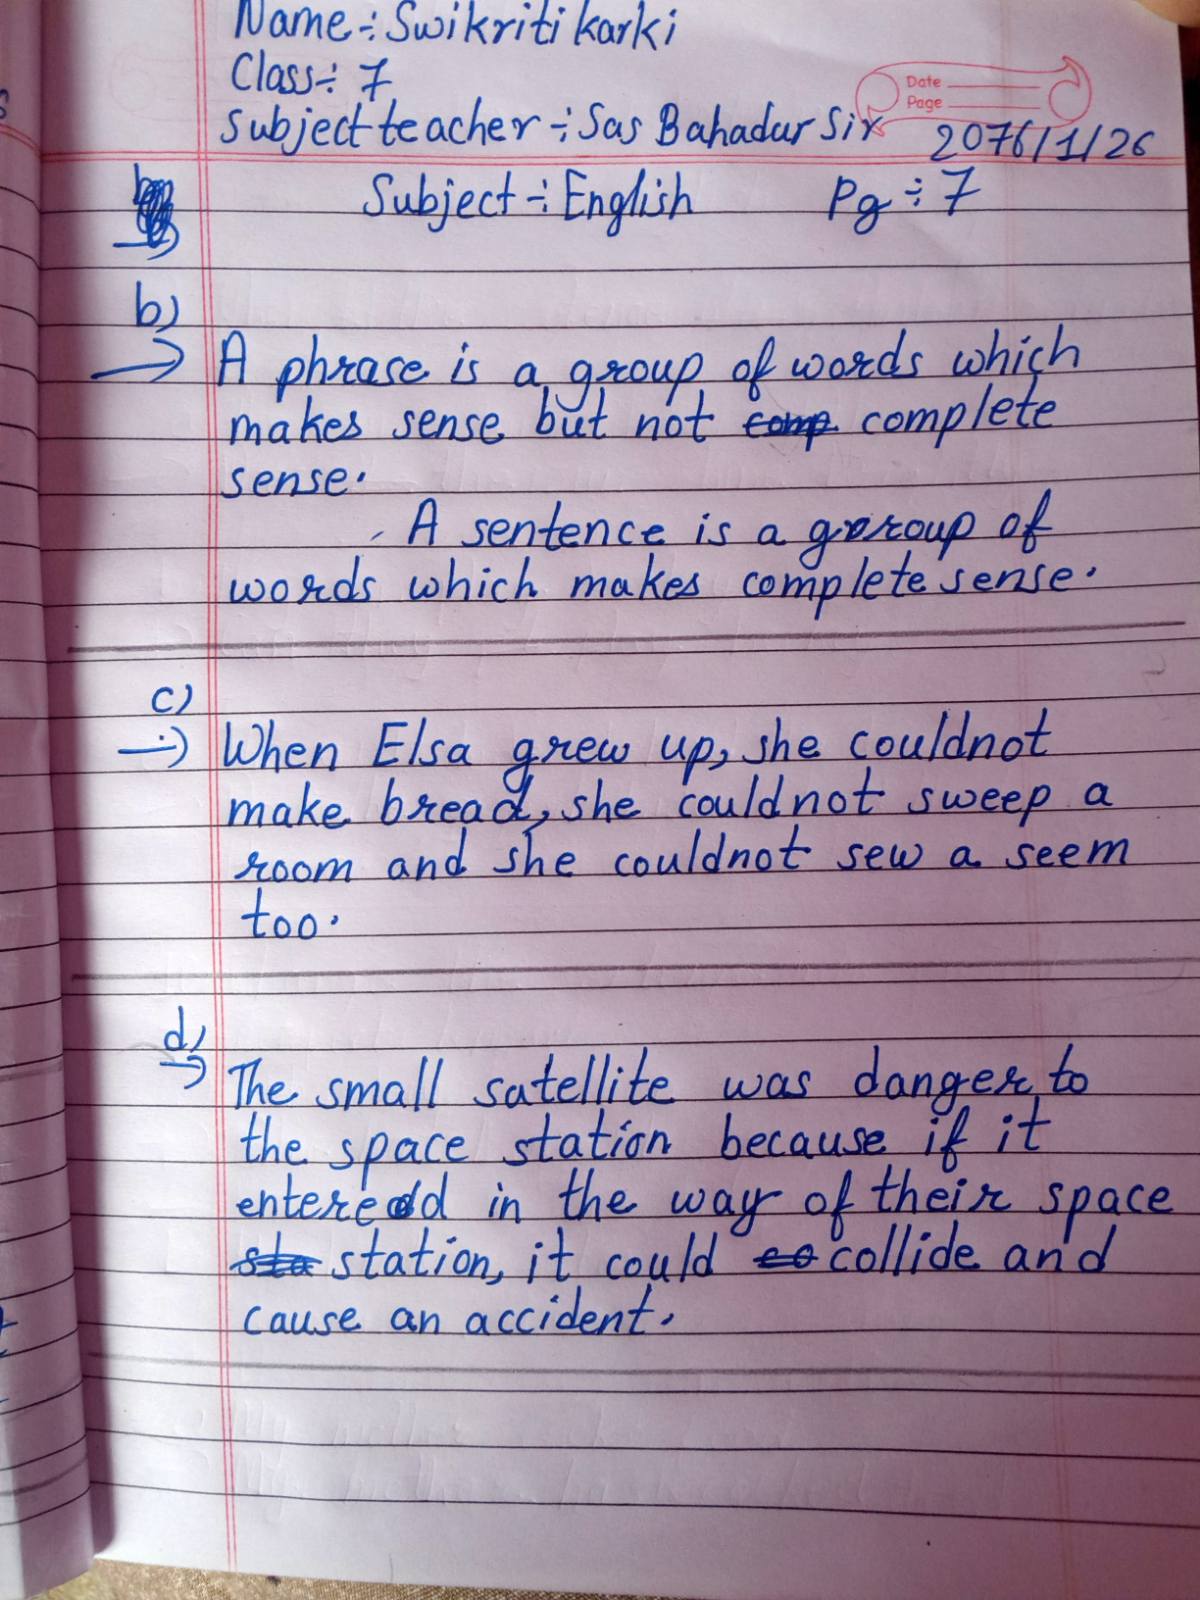 Name÷Swikriti karki
Class÷ 7
Date
Page
Subject teacher÷Sas Bahadur Sir 2076/1/26
Subject÷English Pg÷7
b)
→ A phrase is a group of words which
makes sense but not comp complete
sense.
A sentence is a group of
words which makes complete sense.
c)
→ When Elsa grew up, she couldnot
make bread, she couldnot sweep a
room and she couldnot sew a seem
too.
d)
→ The small satellite was danger to
the space station because if it
entered in the way of their space
sta station, it could co collide and
cause an accident.